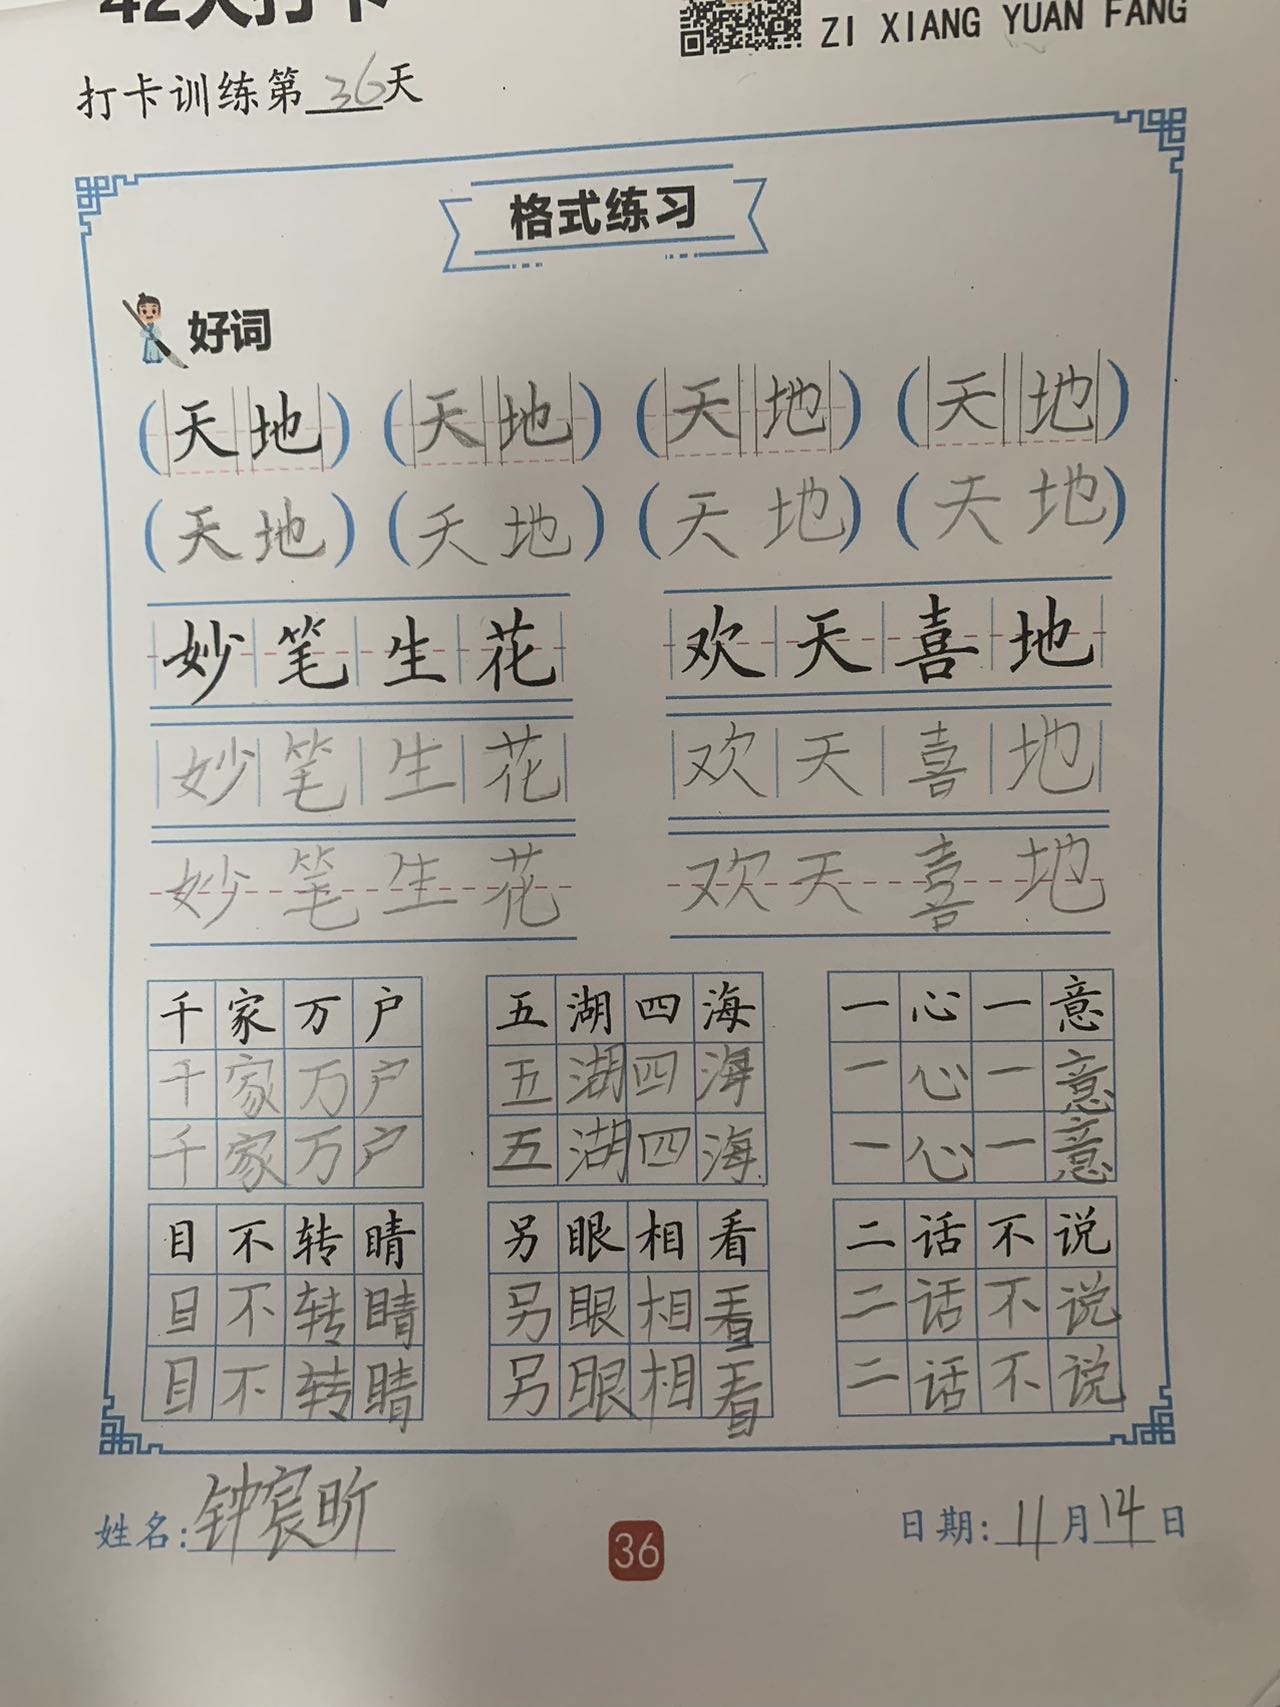 42天打卡
ZI XIANG YUAN FANG
打卡训练第36天
格式练习
好词
(天地) (天地) (天地) (天地)
(天地) (天地) (天地) (天地)
妙笔生花 欢天喜地
妙笔生花 欢天喜地
妙笔生花 欢天喜地
千家万户 五湖四海 一心一意
千家万户 五湖四海 一心一意
千家万户 五湖四海 一心一意
目不转睛 另眼相看 二话不说
目不转睛 另眼相看 二话不说
目不转睛 另眼相看 二话不说
姓名:钟宸昕 日期:11月14日
36